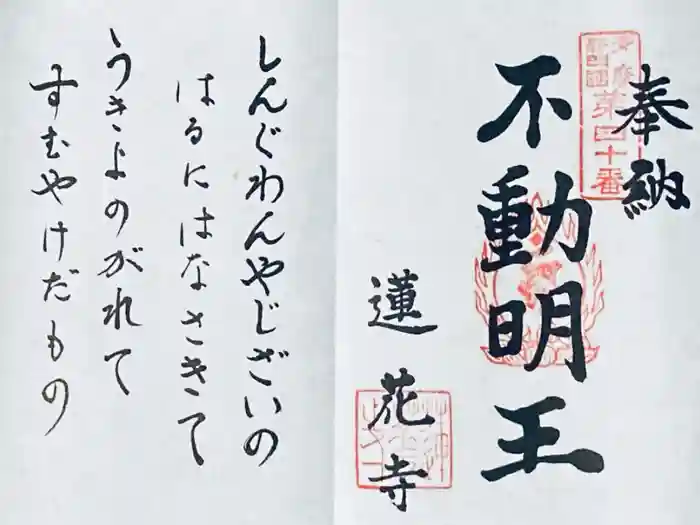 奉納
多摩
四国
第四十番
不動明王
蓮花寺
しんぐわんやじざいの
はるにはなさきて
うきよのがれて
すむやけだもの